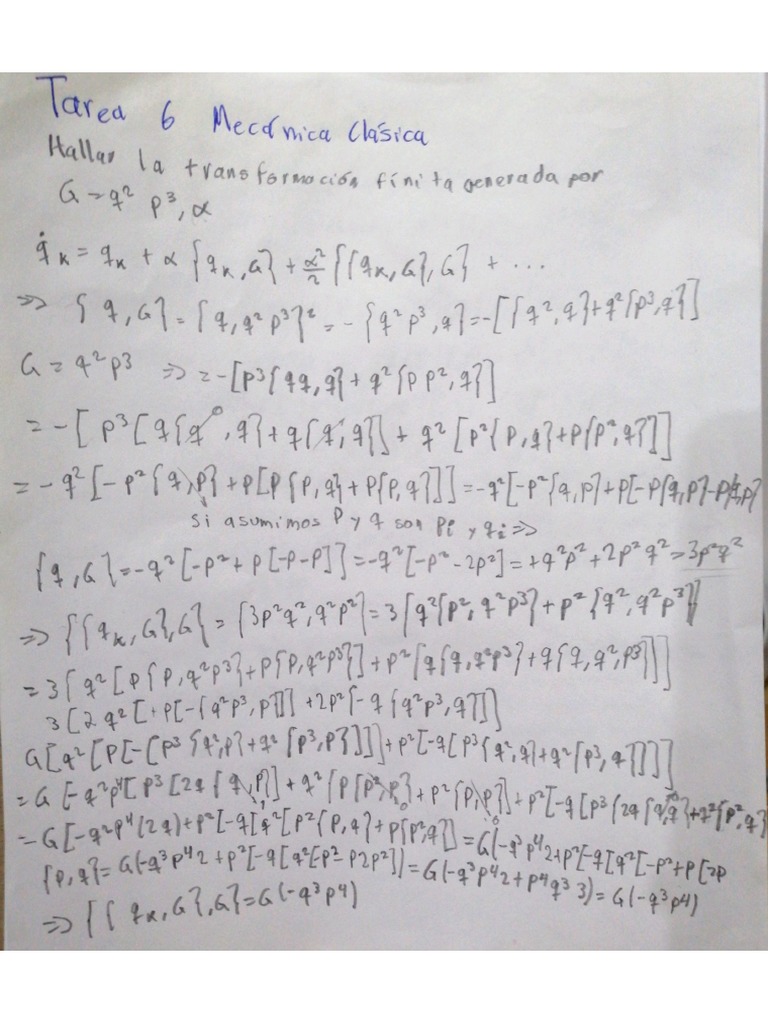 Tarea 6 Mecánica Clásica
Hallar la transformación finita generada por
G = q² p³, α
q̇ₖ = qₖ + α {qₖ, G} + α²/2 {{qₖ, G}, G} + ...
=> {q, G} = {q, q² p³}² = -{q² p³, q} = -[{q², q} + q² {p³, q}]
G = q² p³ => = -[p³{qq, q} + q² {p p², q}]
= -[p³[q{q, q}⁰ + q{q, q}] + q² [p²{p, q} + p{p², q}]]
= -q² [-p² {q, p} + p[p{p, q} + p{p, q}]] = -q²[-p²{q, p} + p[-p{q, p} - p{q, p}
si asumimos p y q son pᵢ y qᵢ =>
{q, G} = -q² [-p² + p[-p-p]] = -q²[-p² - 2p²] = +q²p² + 2p²q² = 3p²q²
=> {{qₖ, G}, G} = {3p²q², q²p²} = 3{q²{p², q²p³} + p² {q², q²p³}}
= 3{q² [p{p, q²p³} + p{p, q²p³}] + p² [q{q, q²p³} + q{q, q², p³}]]
3[2q² [+p[-{q²p³, p}]] + 2p² [-q{q²p³, q}]]
G[q² [p[-[p³{q², p} + q² {p³, p}]]] + p² [-q[p³{q², q} + q² {p³, q}]]]
= G[-q²p⁴[p³[2q{q, p}] + q² {p{p², p} + p²{p, p}] + p² [-q[p³{2q{q, q} + q²{p², q}
= G[-q²p⁴(2q) + p² [-q[q²[p²{p, q} + p{p², q}] = G(-q³p⁴2 + p²[-q[q²[-p² + p[2p
{p, q} = G(-q³p⁴2 + p² [-q[q²[-p² - p2p²]) = G(-q³p⁴2 + p⁴q³3) = G(-q³p⁴)
=> {{qₖ, G}, G} = G(-q³p⁴)